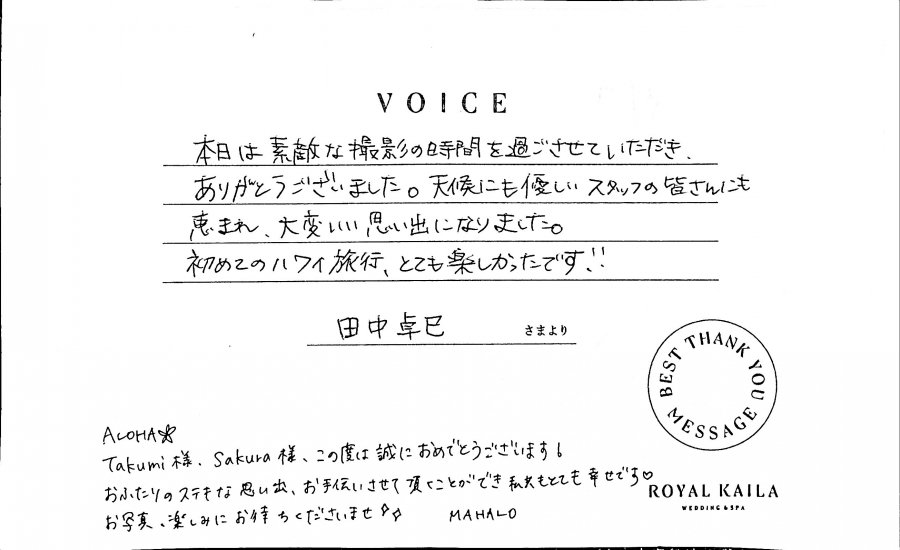 VOICE
本日は素敵な撮影の時間を過ごさせていただき、
ありがとうございました。天候にも優しいスタッフの皆さんにも
恵まれ、大変いい思い出になりました。
初めてのハワイ旅行、とても楽しかったです!!
田中卓巳 さまより
BEST THANK YOU MESSAGE
ALOHA
Takumi様、Sakura様、この度は誠におめでとうございます!
おふたりのステキな思い出、お手伝いさせて頂くことができ私共もとても幸せです♡
お写真、楽しみにお待ちくださいませ
MAHALO
ROYAL KAILA
WEDDING & SPA